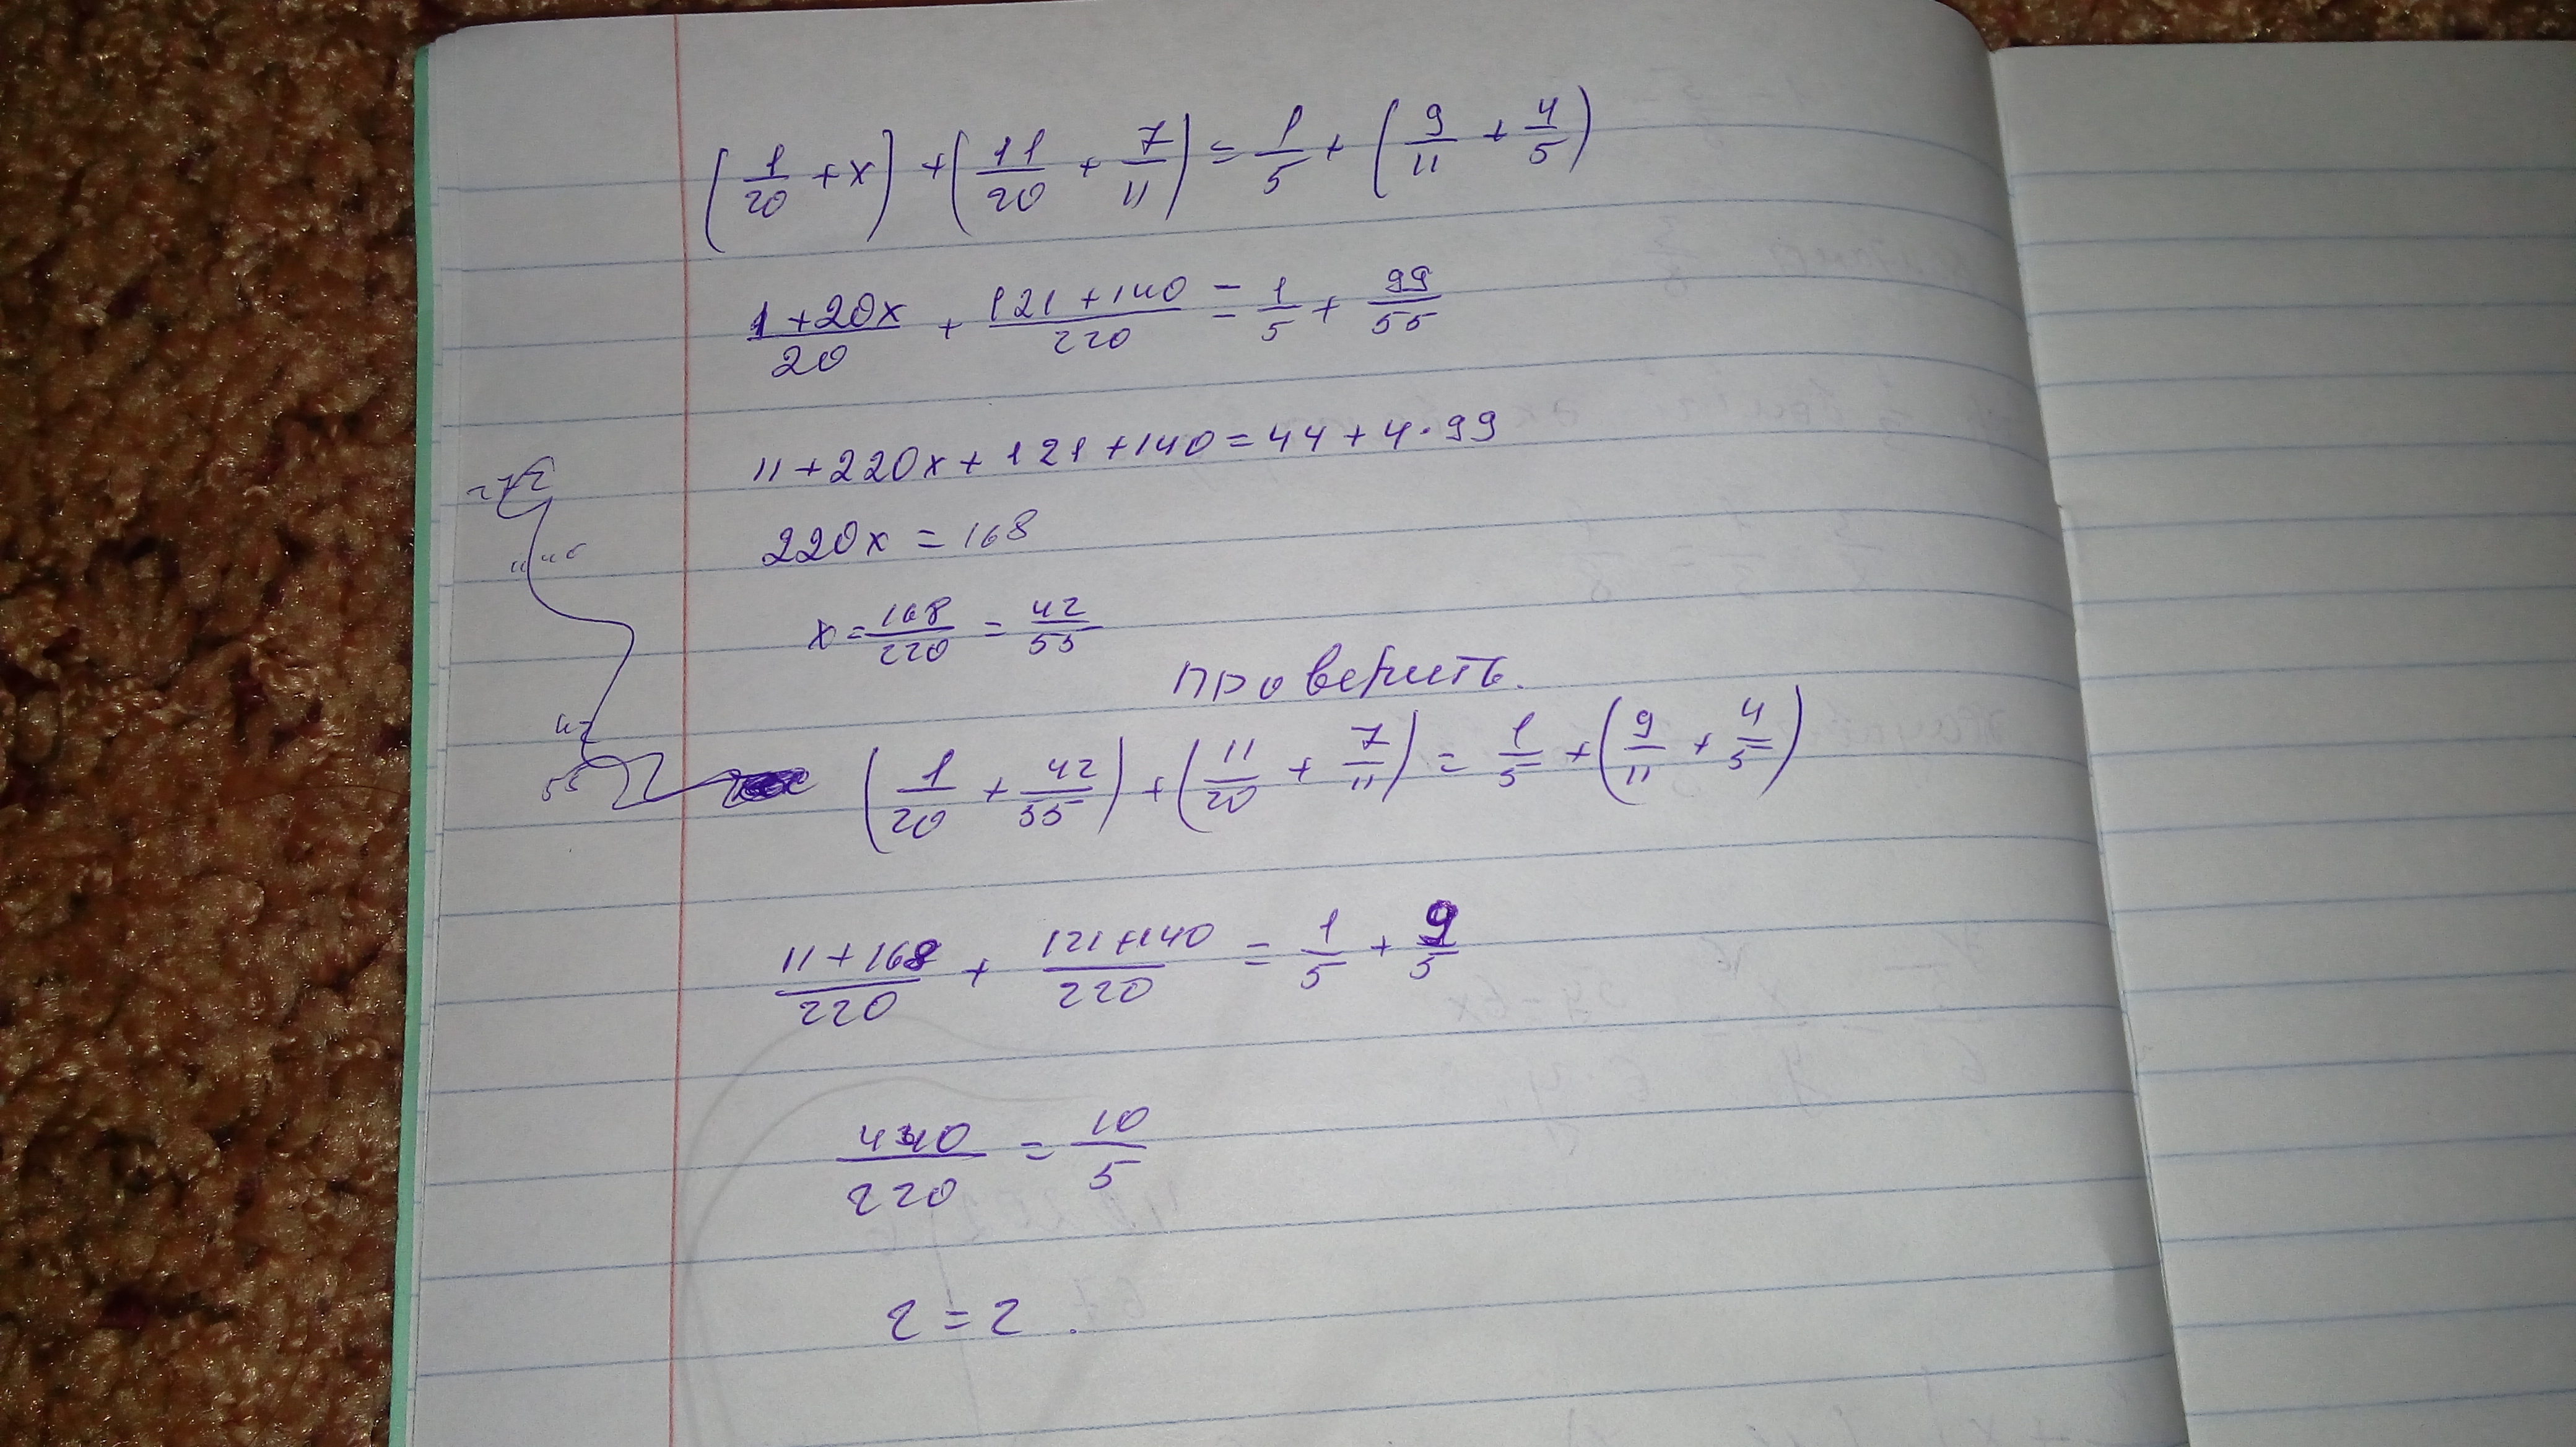 (1/20 + x) + (11/20 + 7/11) = 1/5 + (9/11 + 4/5)
(1 + 20x)/20 + (121 + 140)/220 = 1/5 + 99/55
11 + 220x + 121 + 140 = 44 + 4 · 99
220x = 168
x = 168/220 = 42/55
проверить.
(1/20 + 42/55) + (11/20 + 7/11) = 1/5 + (9/11 + 4/5)
(11 + 168)/220 + (121 + 140)/220 = 1/5 + 9/5
440/220 = 10/5
2 = 2.